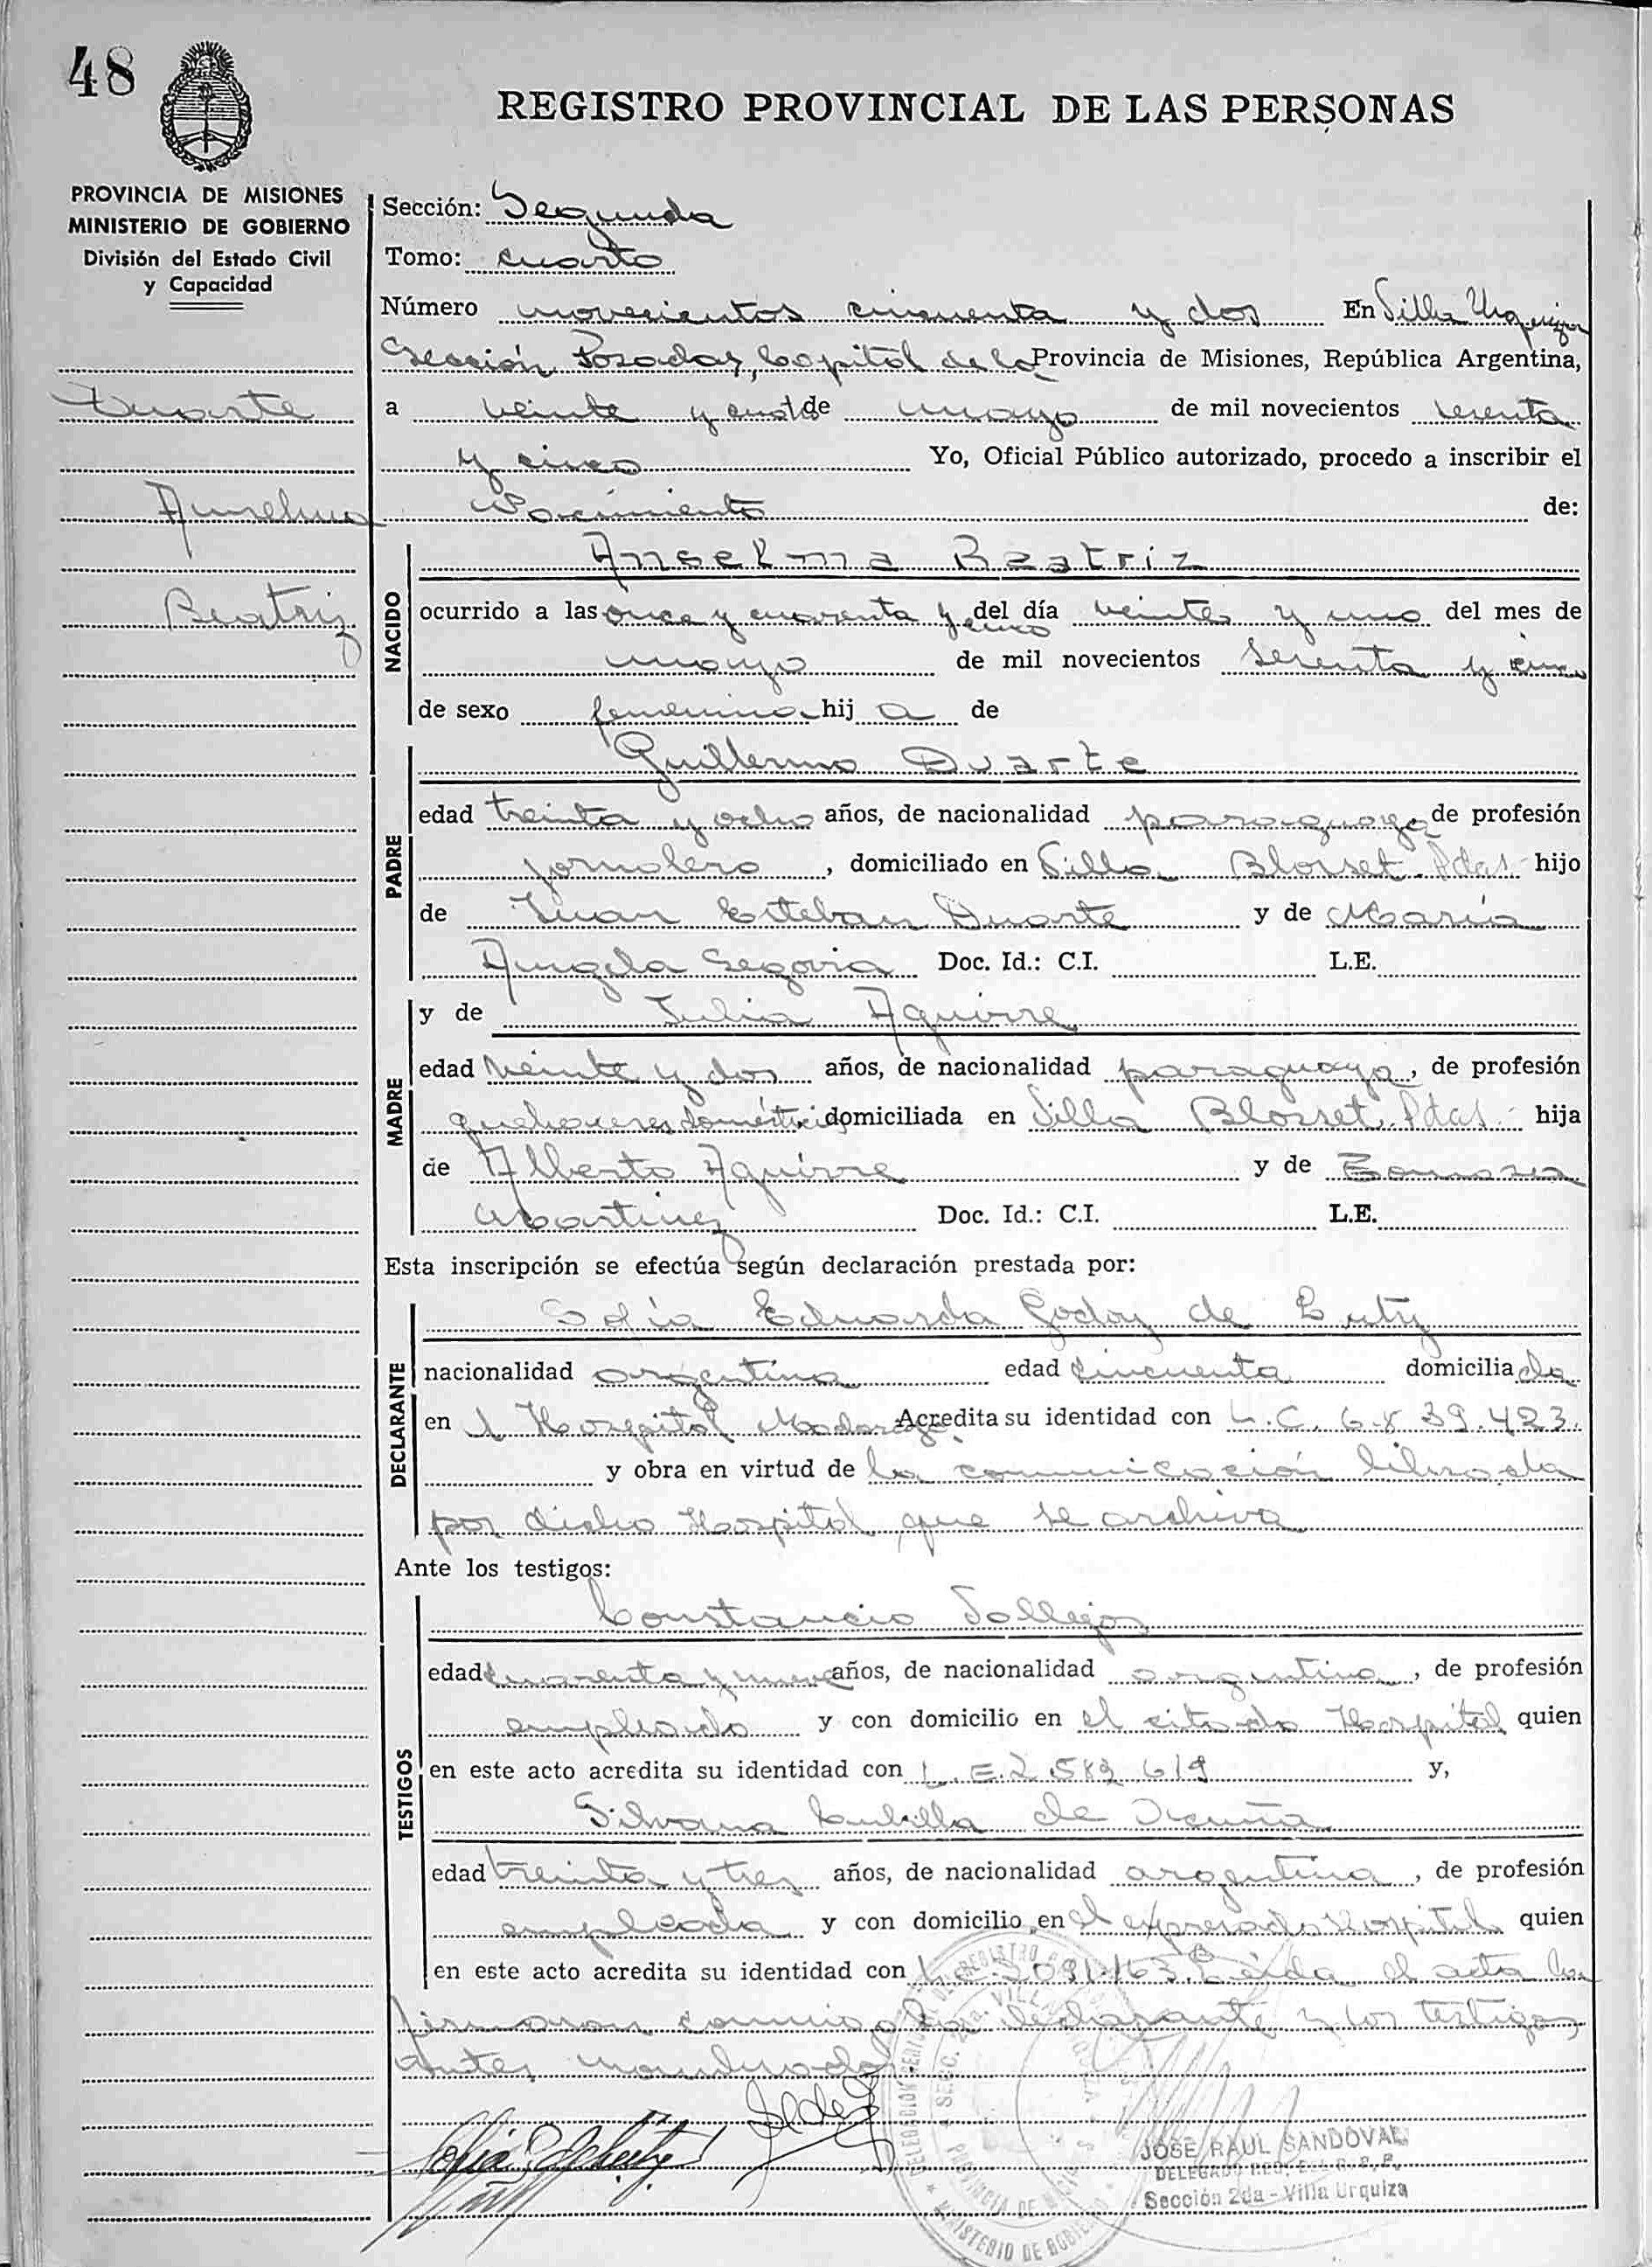 48
REGISTRO PROVINCIAL DE LAS PERSONAS
PROVINCIA DE MISIONES
MINISTERIO DE GOBIERNO
División del Estado Civil
y Capacidad
Duarte
Anselma
Beatriz
Sección: Segunda
Tomo: cuarto
Número novecientos cincuenta y dos En Villa Urquiza
Sección Posadas, Capital de la Provincia de Misiones, República Argentina,
a veinte y de mayo de mil novecientos sesenta
y cinco Yo, Oficial Público autorizado, procedo a inscribir el
Nacimiento de:
NACIDO
Anselma Beatriz
ocurrido a las once y cuarenta y cinco del día veinte y uno del mes de
mayo de mil novecientos sesenta y cinco
de sexo femenino hij a de
PADRE
Guillermo Duarte
edad treinta y ocho años, de nacionalidad paraguaya de profesión
jornalero, domiciliado en Villa Blosset. Pdas. hijo
de Juan Esteban Duarte y de María
Angela Segovia Doc. Id.: C.I. L.E.
MADRE
y de Julia Aguirre
edad veinte y dos años, de nacionalidad paraguaya, de profesión
quehaceres domésticos domiciliada en Villa Blosset. Pdas. hija
de Alberto Aguirre y de
Martinez Doc. Id.: C.I. L.E.
Esta inscripción se efectúa según declaración prestada por:
DECLARANTE
Sofía Eduarda Godoy de
nacionalidad argentina edad cincuenta domicilia da
en l Hospital Madariaga. Acredita su identidad con L.C. 6.839.423.
y obra en virtud de la comunicación librada
por dicho Hospital que se archiva
Ante los testigos:
TESTIGOS
Constancio Vallejos
edad cuarenta y nueve años, de nacionalidad argentina, de profesión
empleado y con domicilio en el citado Hospital quien
en este acto acredita su identidad con L.E. 2.582.619 y,
Silvana Cubilla de Acuña
edad treinta y tres años, de nacionalidad argentina, de profesión
empleada y con domicilio en el expresado Hospital quien
en este acto acredita su identidad con L.C. 2.091.163. Leída el acta la
firmaron conmigo la declarante y los testigos
antes nombrados
JOSE RAUL SANDOVAL
Sección 2da - Villa Urquiza